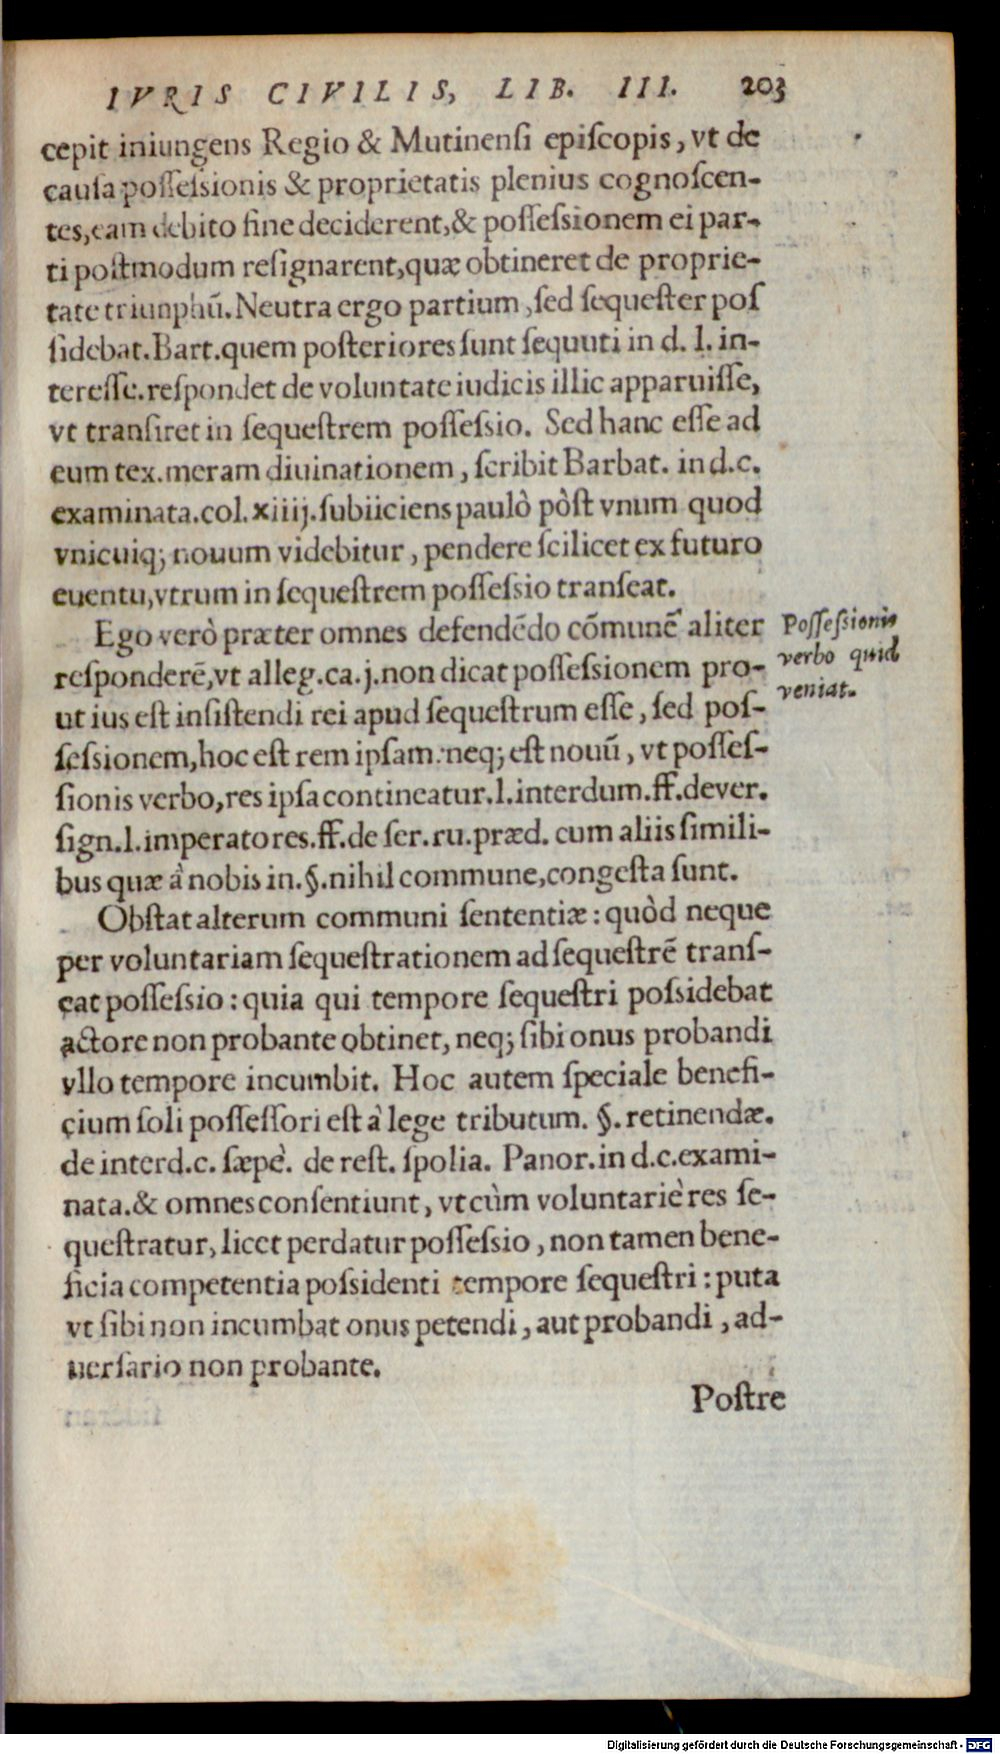 IVRIS CIVILIS, LIB. III. 203
cepit iniungens Regio & Mutinenſi epiſcopis, vt de
cauſa poſſeſsionis & proprietatis plenius cognoſcen-
tes, eam debito fine deciderent, & poſſeſsionem ei par-
ti poſtmodum reſignarent, quæ obtineret de proprie-
tate triunphū. Neutra ergo partium, ſed ſequeſter poſ
ſidebat. Bart. quem poſteriores ſunt ſequuti in d. l. in-
tereſſe. reſpondet de voluntate iudicis illic apparuiſſe,
vt tranſiret in ſequeſtrem poſſeſsio. Sed hanc eſſe ad
eum tex. meram diuinationem, ſcribit Barbat. in d. c.
examinata. col. xiiij. ſubiiciens paulò pòſt vnum quod
vnicuiq; nouum videbitur, pendere ſcilicet ex futuro
euentu, vtrum in ſequeſtrem poſſeſsio tranſeat.
Ego verò præter omnes defendēdo cōmunē aliter
reſponderē, vt alleg. ca. j. non dicat poſſeſsionem pro-
ut ius eſt inſiſtendi rei apud ſequeſtrum eſſe, ſed poſ-
ſeſsionem, hoc eſt rem ipſam: neq; eſt nouū, vt poſſeſ-
ſionis verbo, res ipſa contineatur. l. interdum. ff. de ver.
ſign. l. imperatores. ff. de ſer. ru. præd. cum aliis ſimili-
bus quæ à nobis in. §. nihil commune, congeſta ſunt.
Poſſeſsionis
verbo quid
veniat.
Obſtat alterum communi ſententiæ: quòd neque
per voluntariam ſequeſtrationem ad ſequeſtrē tranſ-
eat poſſeſsio: quia qui tempore ſequeſtri poſsidebat
actore non probante obtinet, neq; ſibi onus probandi
vllo tempore incumbit. Hoc autem ſpeciale benefi-
cium ſoli poſſeſſori eſt à lege tributum. §. retinendæ.
de interd. c. ſæpè. de reſt. ſpolia. Panor. in d. c. exami-
nata. & omnes conſentiunt, vt cùm voluntariè res ſe-
queſtratur, licet perdatur poſſeſsio, non tamen bene-
ficia competentia poſsidenti tempore ſequeſtri: puta
vt ſibi non incumbat onus petendi, aut probandi, ad-
uerſario non probante.
Poſtre
Digitalisierung gefördert durch die Deutsche Forschungsgemeinschaft - DFG